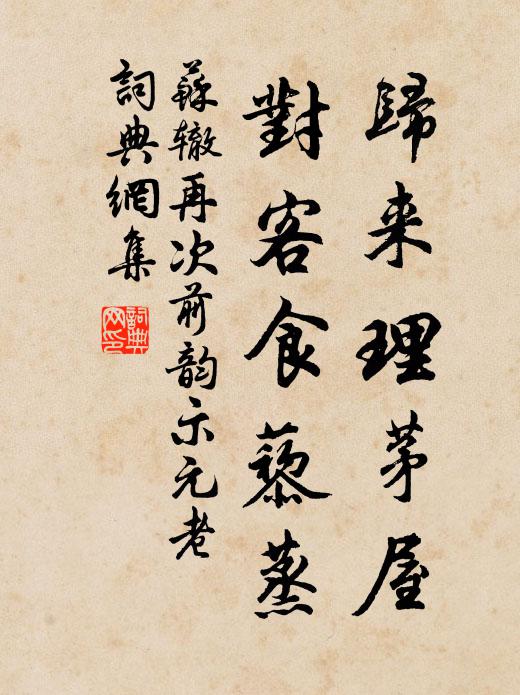 歸来理茅屋
對客食藜蒸
蘇辙再次前韵示元老
詞典網集
詞典网印